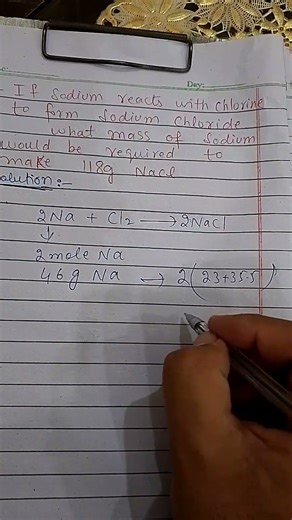 Day:
If Sodium reacts with Chlorine
to form Sodium Chloride
what mass of Sodium
would be required to
make 118g NaCl
olution:-
2Na + Cl₂ → 2NaCl
↓
2 mole Na
46 g Na → 2(23+35.5)